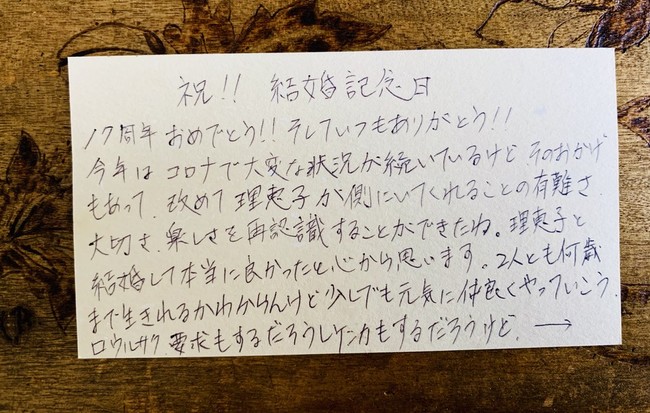 祝!! 結婚記念日
17周年 おめでとう!! そしていつもありがとう!!
今年は コロナで大変な状況が続いているけど そのおかげ
もあって、改めて 理恵子が側にいてくれることの有難さ、
大切さ、楽しさを再認識することができたね。理恵子と
結婚して本当に良かったと心から思います。2人とも何歳
まで生きれるかわからんけど少しでも元気に仲良くやっていこう。
口ウルサク 要求もするだろうしケンカもするだろうけど、→